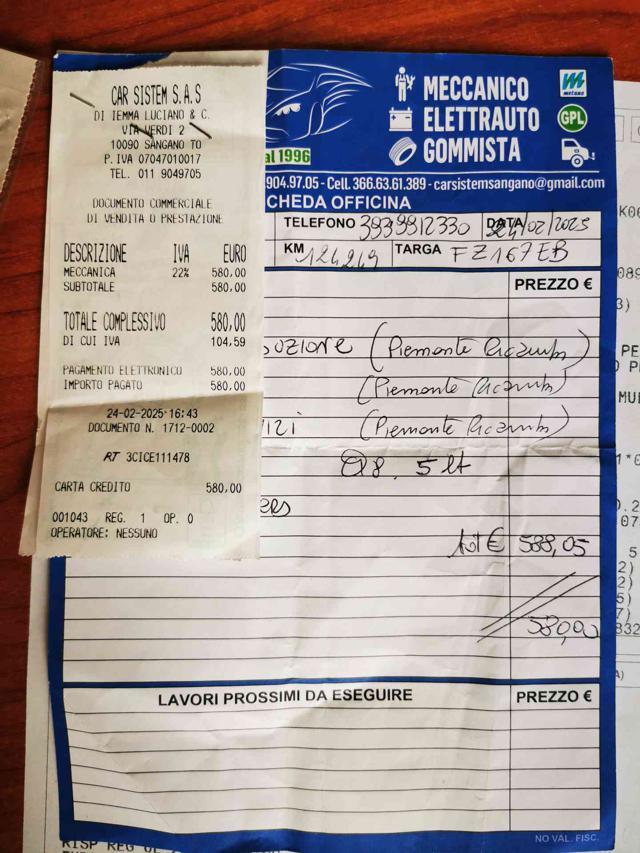 CAR SISTEM S.A.S
DI IEMMA LUCIANO & C.
VIA VERDI 2
10090 SANGANO TO
P.IVA 07047010017
TEL. 011 9049705
DOCUMENTO COMMERCIALE
DI VENDITA O PRESTAZIONE
DESCRIZIONE IVA EURO
MECCANICA 22% 580,00
SUBTOTALE 580,00
TOTALE COMPLESSIVO 580,00
DI CUI IVA 104,59
PAGAMENTO ELETTRONICO 580,00
IMPORTO PAGATO 580,00
24-02-2025 16:43
DOCUMENTO N. 1712-0002
RT 3CICE111478
CARTA CREDITO 580,00
001043 REG. 1 OP. 0
OPERATORE: NESSUNO
MECCANICO
ELETTRAUTO
GOMMISTA
metano
GPL
al 1996
904.97.05 - Cell. 366.63.61.389 - carsistemsangano@gmail.com
CHEDA OFFICINA
TELEFONO 3939912330 DATA 24/02/2025
KM 124249 TARGA FZ167EB
PREZZO €
(Piemonte Ricambi)
(Piemonte Ricambi)
(Piemonte Ricambi)
5 lt
tot € 588,05
580,00
LAVORI PROSSIMI DA ESEGUIRE PREZZO €
NO VAL. FISC.